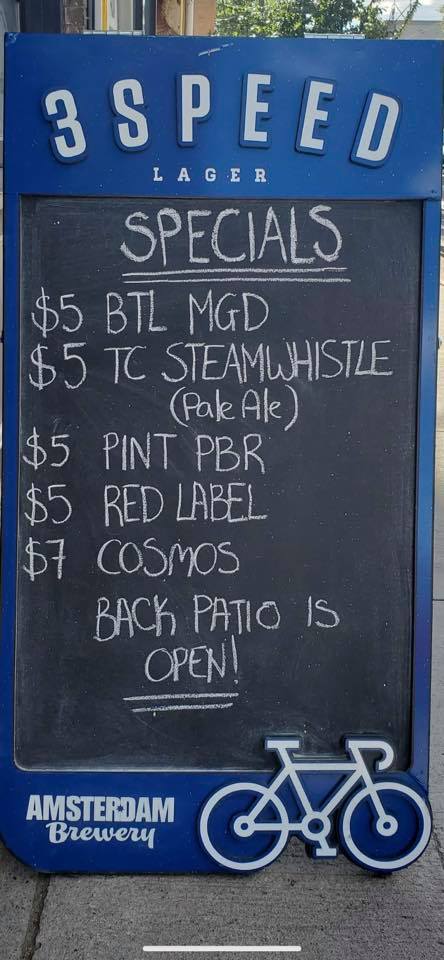 3 SPEED
LAGER
SPECIALS
$5 BTL MGD
$5 TC STEAMWHISTLE
(Pale Ale)
$5 PINT PBR
$5 RED LABEL
$7 COSMOS
BACK PATIO IS
OPEN!
AMSTERDAM
Brewery